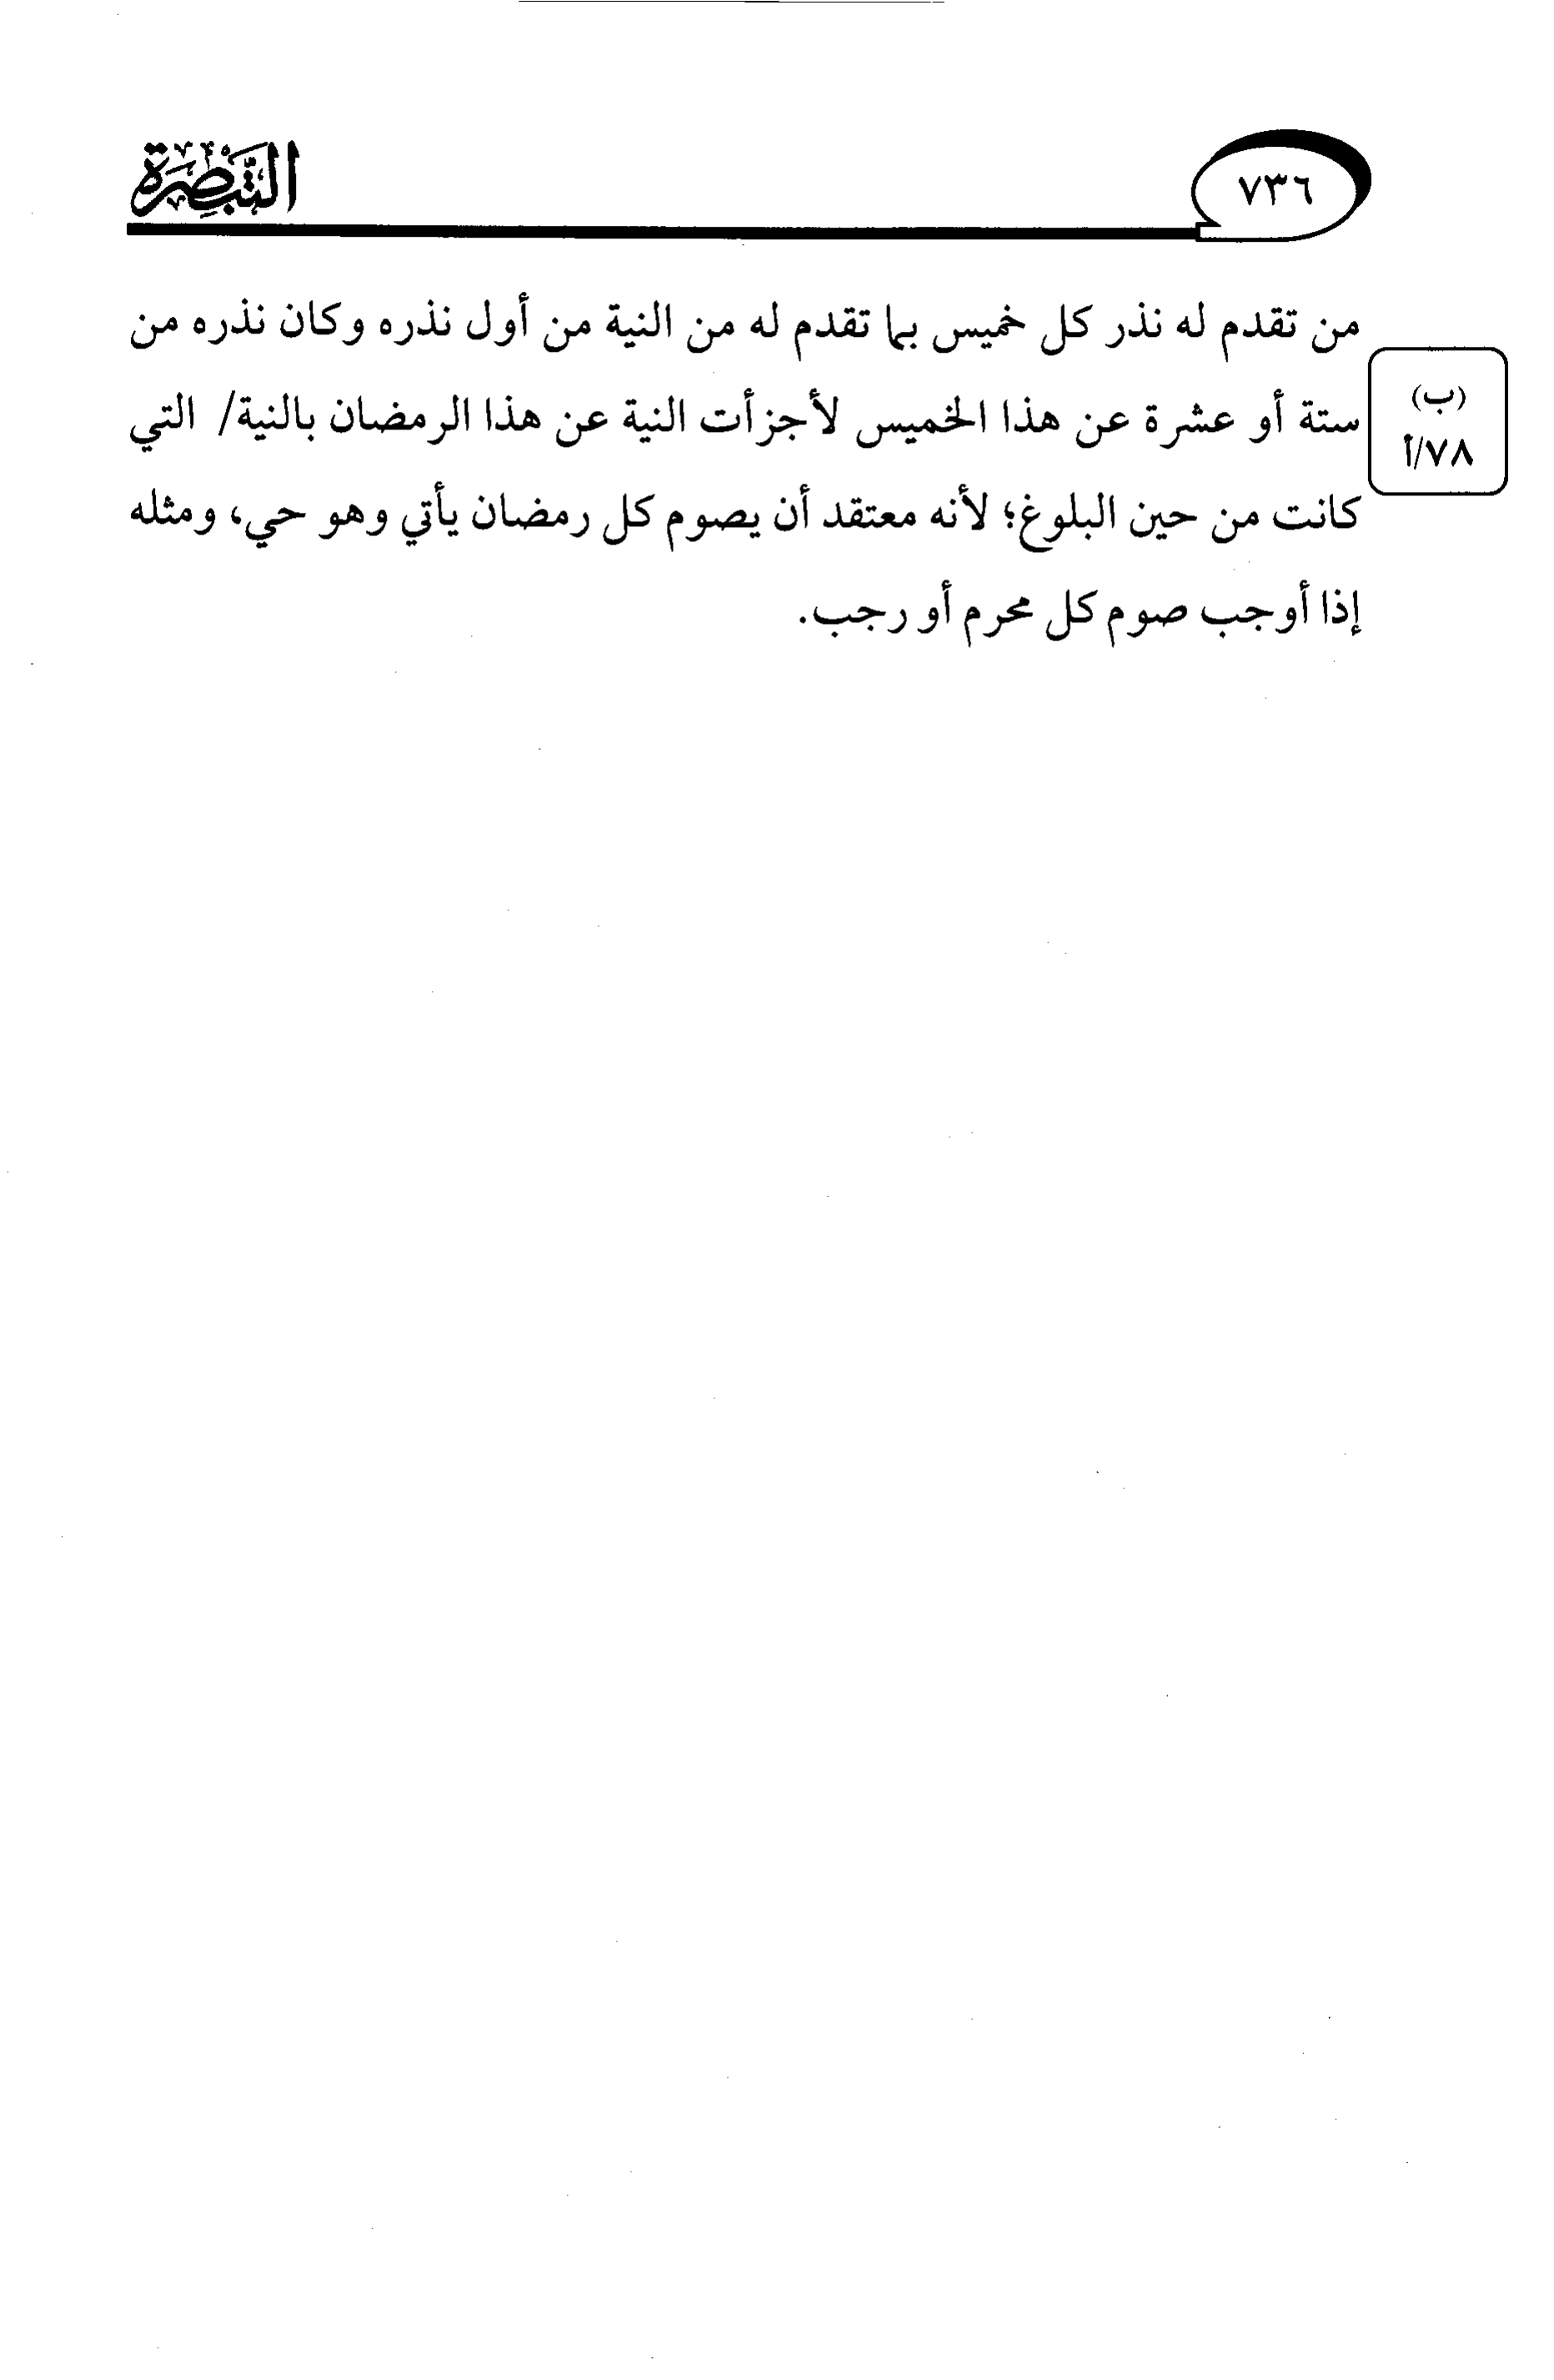 التَّبْصِرَة
٧٣٦
من تقدم له نذر كل خميس بما تقدم له من النية من أول نذره وكان نذره من
ستة أو عشرة عن هذا الخميس لأجزأت النية عن هذا الرمضان بالنية/ التي
(ب)
٧٨/أ
كانت من حين البلوغ؛ لأنه معتقد أن يصوم كل رمضان يأتي وهو حي، ومثله
إذا أوجب صوم كل محرم أو رجب.